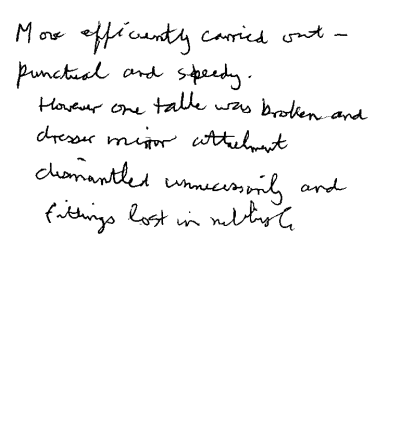 Move efficiently carried out -
punctual and speedy.
However one table was broken and
dresser mirror attachment
dismantled unnecessarily and
fittings lost in rubbish